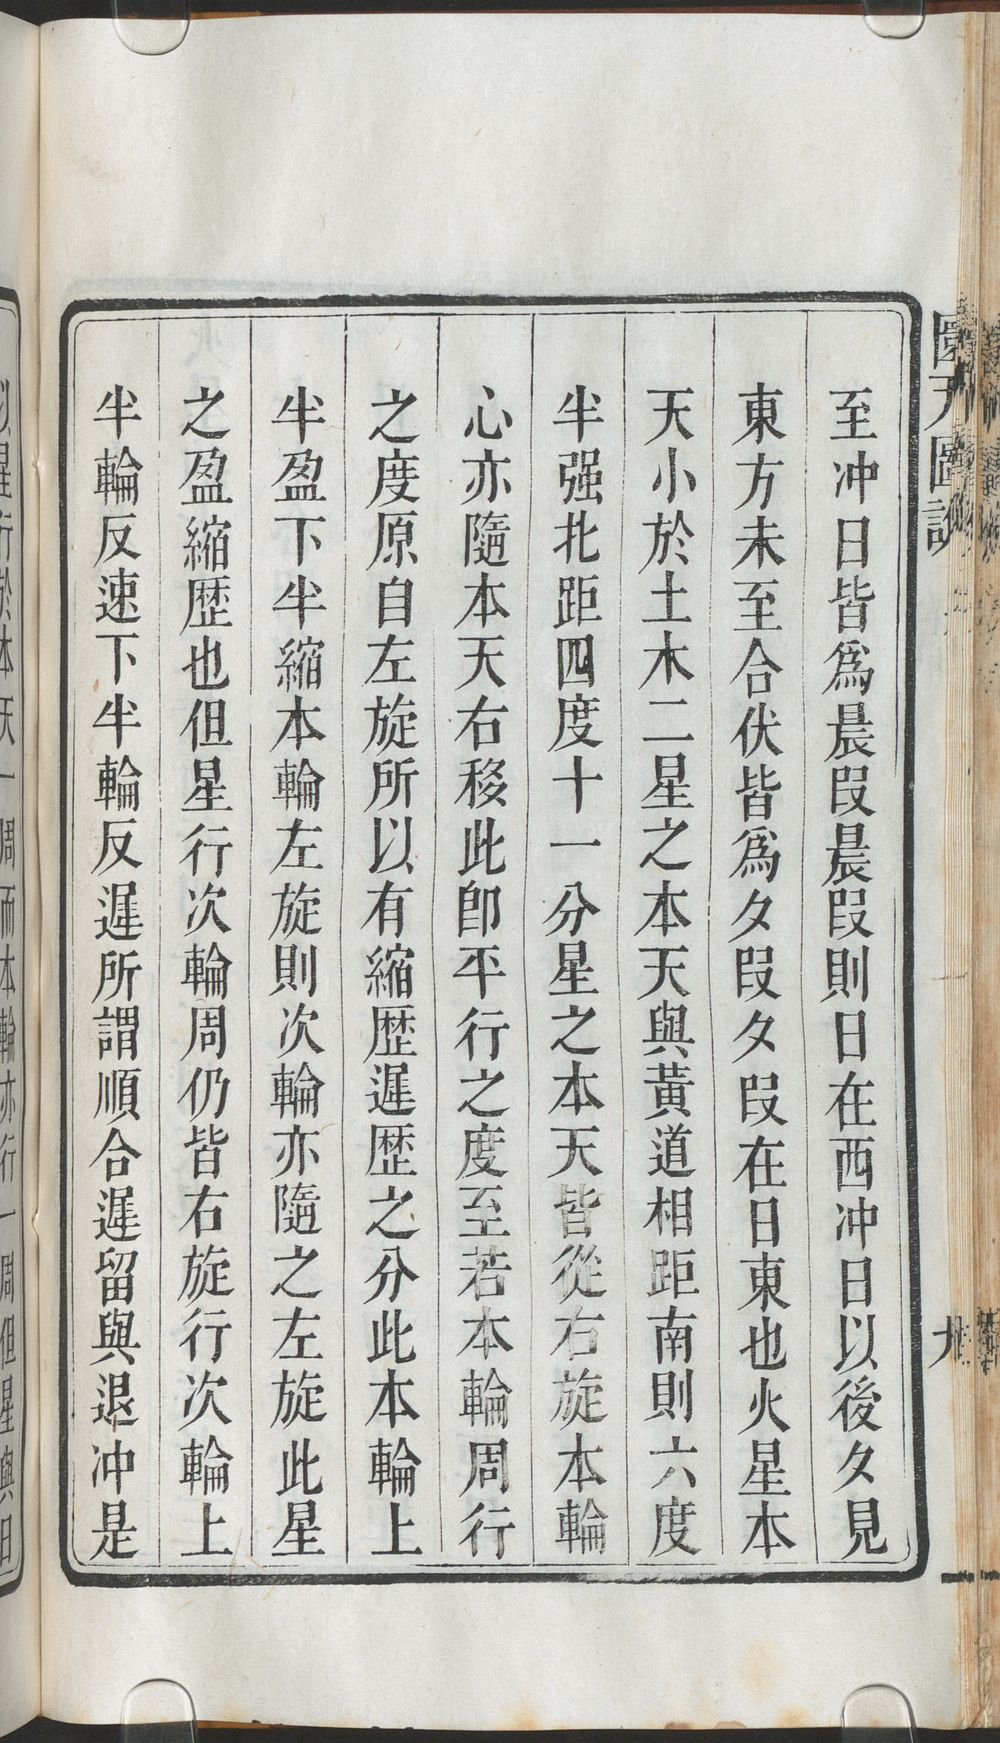 至冲日皆爲晨段晨段則日在西冲日以後夕見
東方未至合伏皆爲夕段夕段在日東也火星本
天小於土木二星之本天與黃道相距南則六度
半强北距四度十一分星之本天皆從右旋本輪
心亦隨本天右移此卽平行之度至若本輪周行
之度原自左旋所以有縮歷遲歷之分此本輪上
半盈下半縮本輪左旋則次輪亦隨之左旋此星
之盈縮歷也但星行次輪周仍皆右旋行次輪上
半輪反速下半輪反遲所謂順合遲留與退冲是
以星行於本天一周而本輪亦行一周但星與日